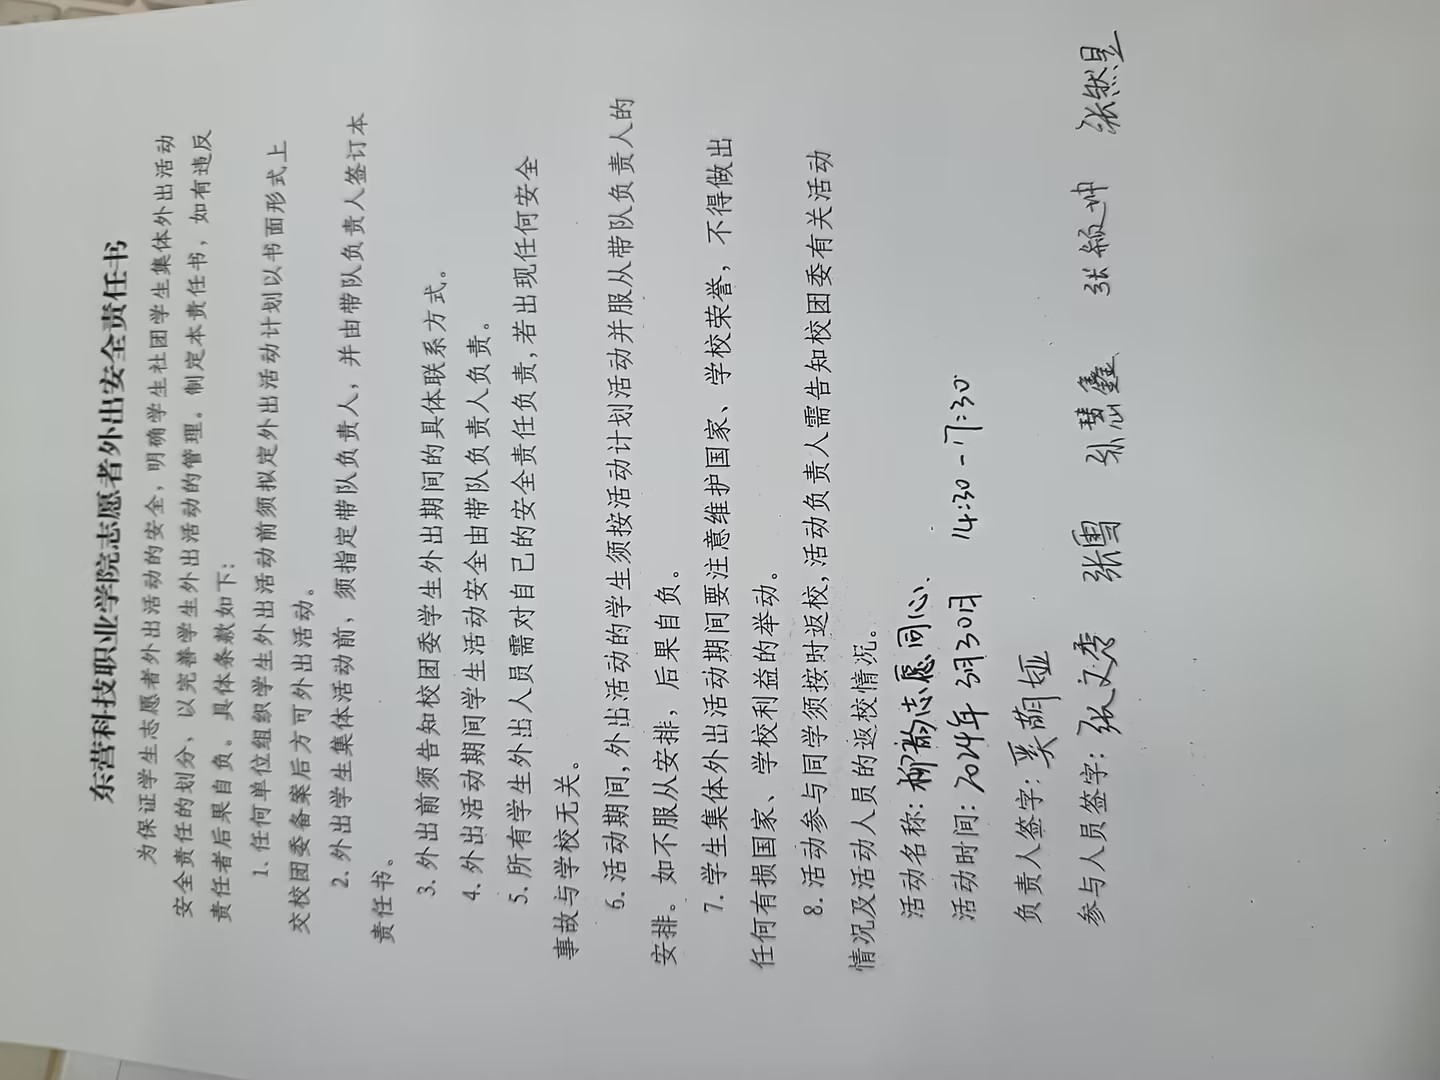 东营科技职业学院志愿者外出安全责任书
为保证学生志愿者外出活动的安全，明确学生社团学生集体外出活动
安全责任的划分、以完善学生外出活动的管理。制定本责任书，如有违反
责任者后果自负。具体条款如下：
1. 任何单位组织学生外出活动前须拟定外出活动计划以书面形式上
交校团委备案后方可外出活动。
2. 外出学生集体活动前，须指定带队负责人，并由带队负责人签订本
责任书。
3. 外出前须告知校团委学生外出期间的具体联系方式。
4. 外出活动期间学生活动安全由带队负责人负责。
5. 所有学生外出人员需对自己的安全责任负责,若出现任何安全
事故与学校无关。
6. 活动期间,外出活动的学生须按活动计划活动并服从带队负责人的
安排。如不服从安排，后果自负。
7. 学生集体外出活动期间要注意维护国家、学校荣誉，不得做出
任何有损国家、学校利益的举动。
8. 活动参与同学须按时返校,活动负责人需告知校团委有关活动
情况及活动人员的返校情况。
活动名称: 柳韵志愿 同心
活动时间: 2024年 3月30日 14:30-17:30
负责人签字: 奚萌娅
参与人员签字: 张文秀 张雪 孙慧鑫 张